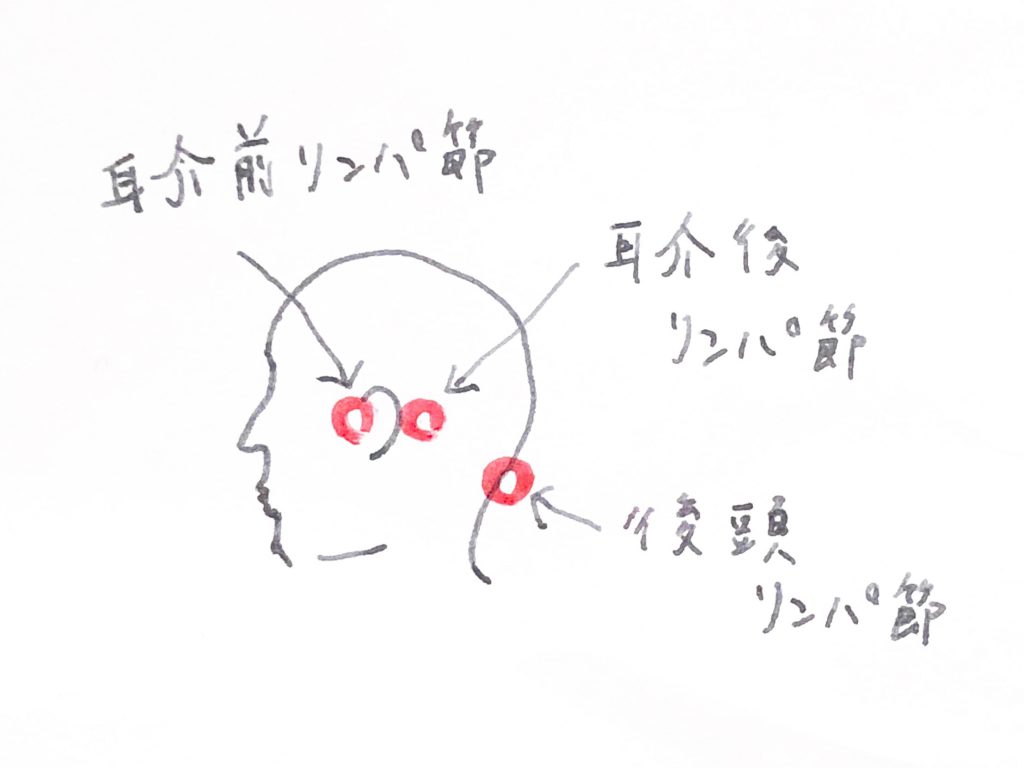 耳介前リンパ節
耳介後
リンパ節
後頭
リンパ節